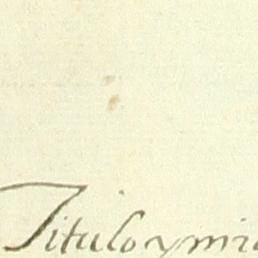 Titulo y mi